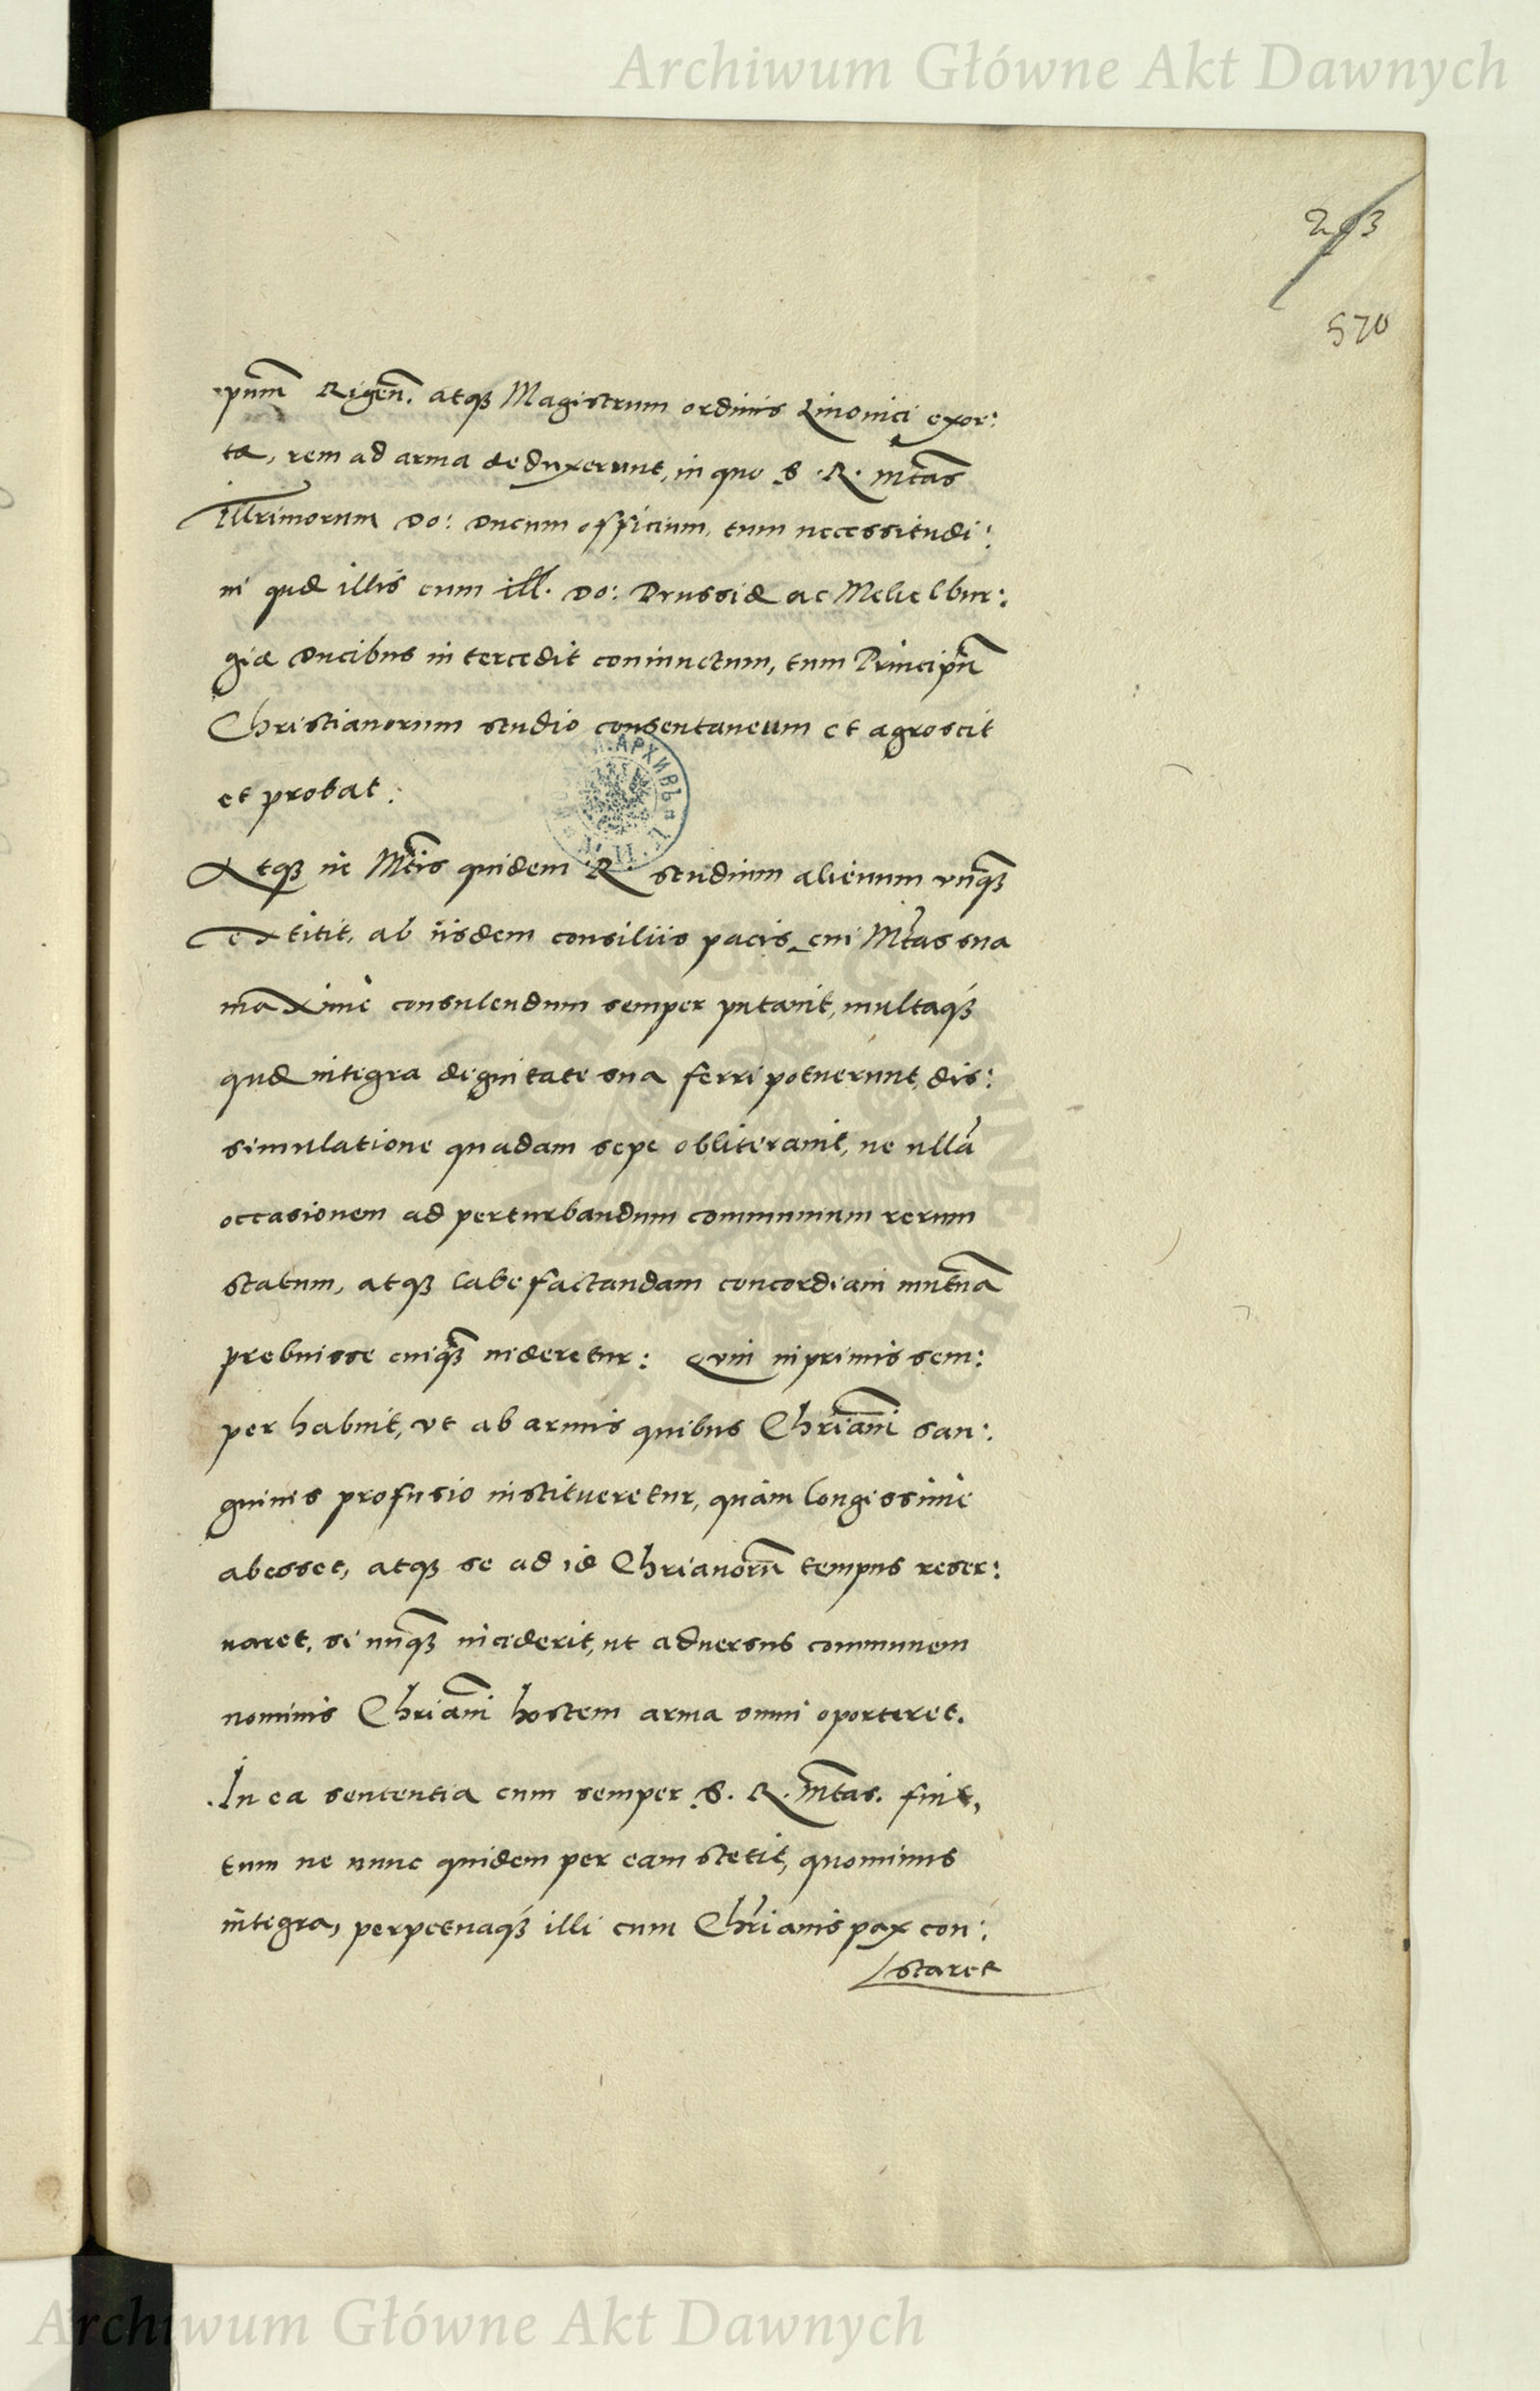 Archiwum Główne Akt Dawnych
570
pum̃ Rigeñ. atq₃ Magistrum ordinis Liuonici exor:
ta, rem ad arma deduxerunt, in quo S. R. Mt̃as
Illrimorum Do: Ducum officium, tum necessitudi:
ni quæ illis cum ill. Do: Prussiæ ac Mehelbur:
giæ Ducibus intercedit coniunctum, tum Principũ
Christianorum studio consentaneum et agnoscit
et probat:
Atq₃ nec Mt̃is quidem R. studium alienum vnq̃₃
extitit, ab iisdem consiliis pacis, cui Mt̃as sua
maximè consulendum semper putauit, multaq́₃
quæ integra dignitate sua ferri potuerunt, dis:
simulatione quadam sepe obliterauit, ne ullã
occasionem ad perturbandum communium rerum
statum, atq₃ labefactandam concordiam mutuã
prebuisse cuiq̃₃ uideretur: Quin inprimis sem:
per habuit, vt ab armis quibus Chriãni san:
guinis profusio institueretur, quàm longissimè
abesset, atq₃ se ad id Chrianorũ tempus reser:
uaret, si unq̃₃ inciderit, ut aduersus communem
nominis Chriãni hostem arma sumi oporteret.
In ea sententia cum semper S. R. Mt̃as. fuit,
tum ne nunc quidem per eam stetit, quominus
integra, perpetuaq́₃ illi cum Chr̃ianis pax con:
staret
Archiwum Główne Akt Dawnych